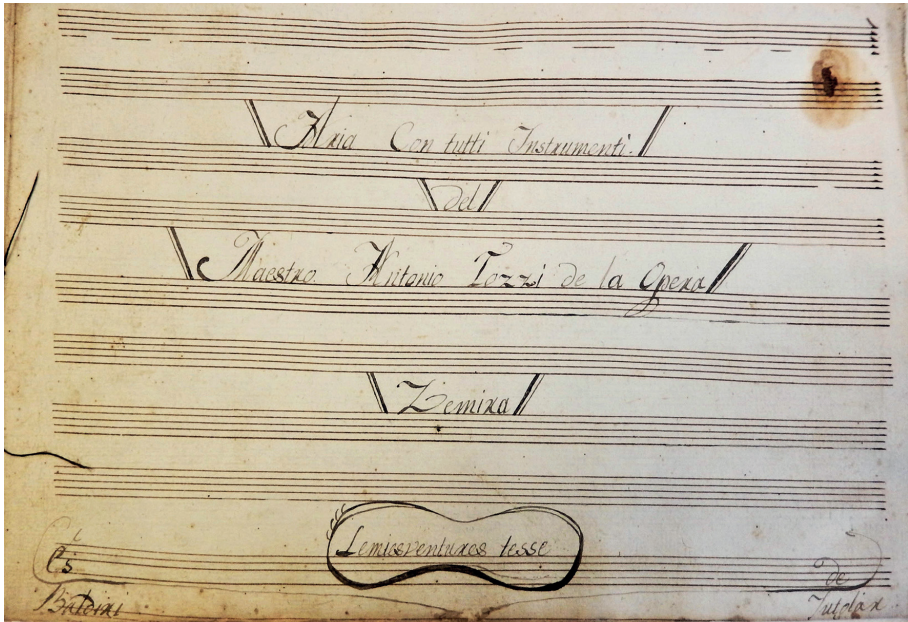 Aria Con tutti Instrumenti.
del
Maestro Antonio Tozzi de la Opera
Zemira
Lemiesventures tesse
Es de